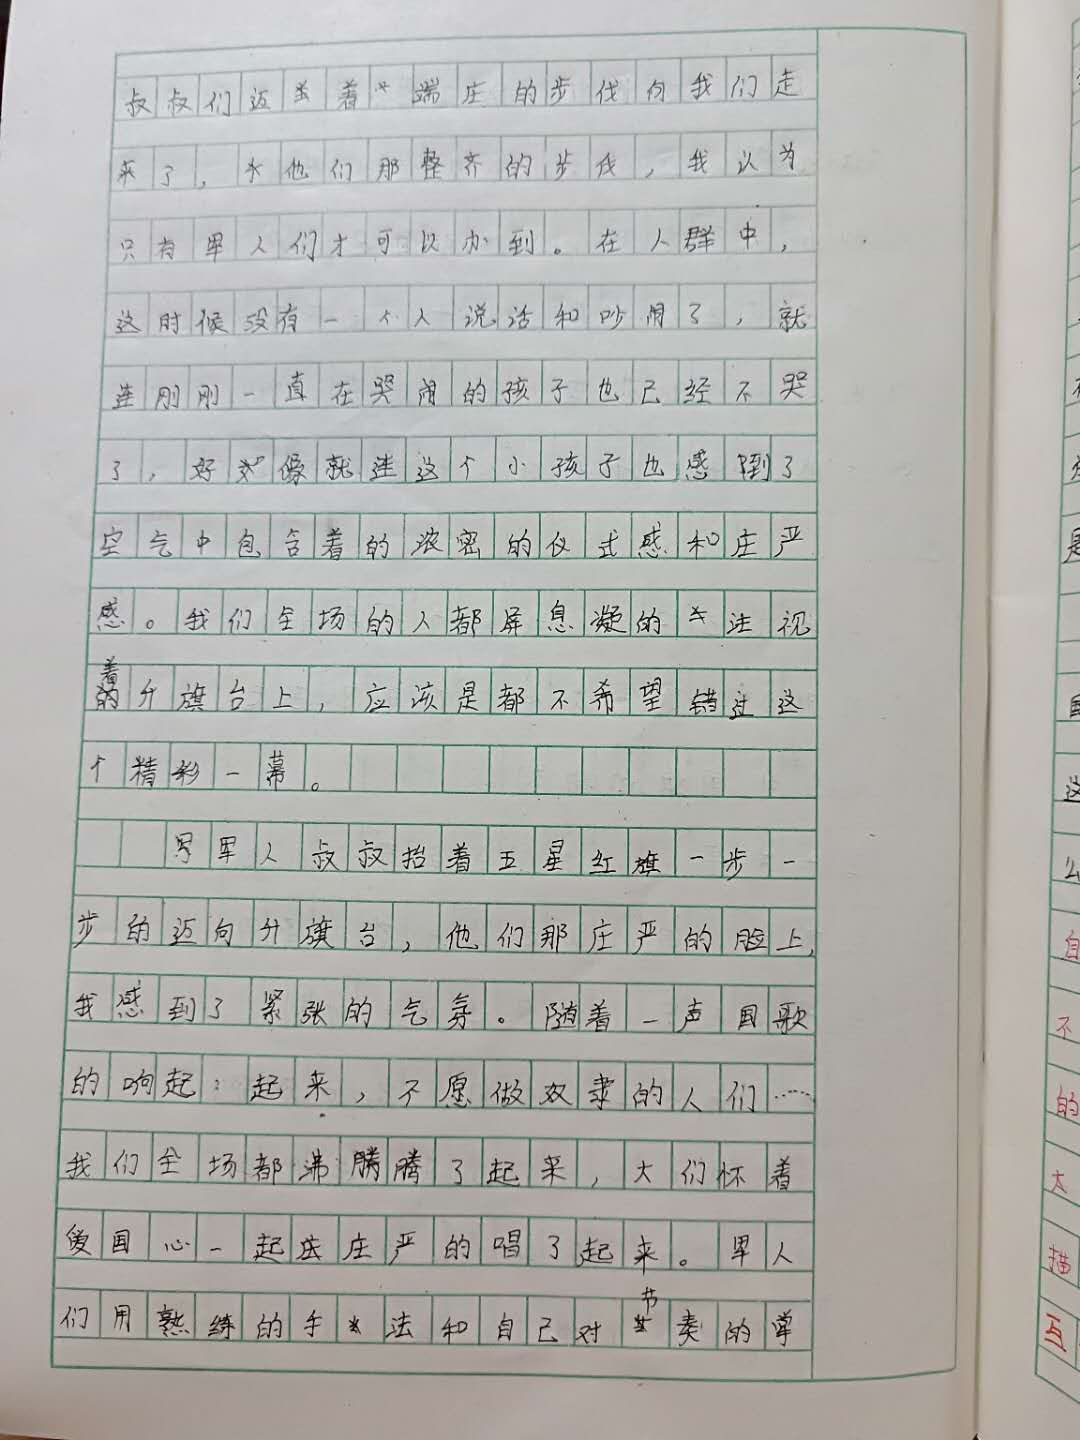 叔叔们迈着端庄的步伐向我们走
来了，他们那整齐的步伐，我认为
只有军人们才可以办到。在人群中，
这时候没有一个人说话和吵闹了，就
连刚刚一直在哭闹的孩子也已经不哭
了，好像就连这个小孩子也感到了
空气中包含着的浓密的仪式感和庄严
感。我们全场的人都屏息凝的注视
着升旗台上，应该是都不希望错过这
个精彩一幕。
军人叔叔抬着五星红旗一步一
步的迈向升旗台，他们那庄严的脸上，
我感到了紧张的气氛。随着一声国歌
的响起：起来，不愿做奴隶的人们……
我们全场都沸腾腾了起来，大们怀着
爱国心一起庄严的唱了起来。军人
们用熟练的手法和自己对节奏的掌
这
自
不
的
大
描
互